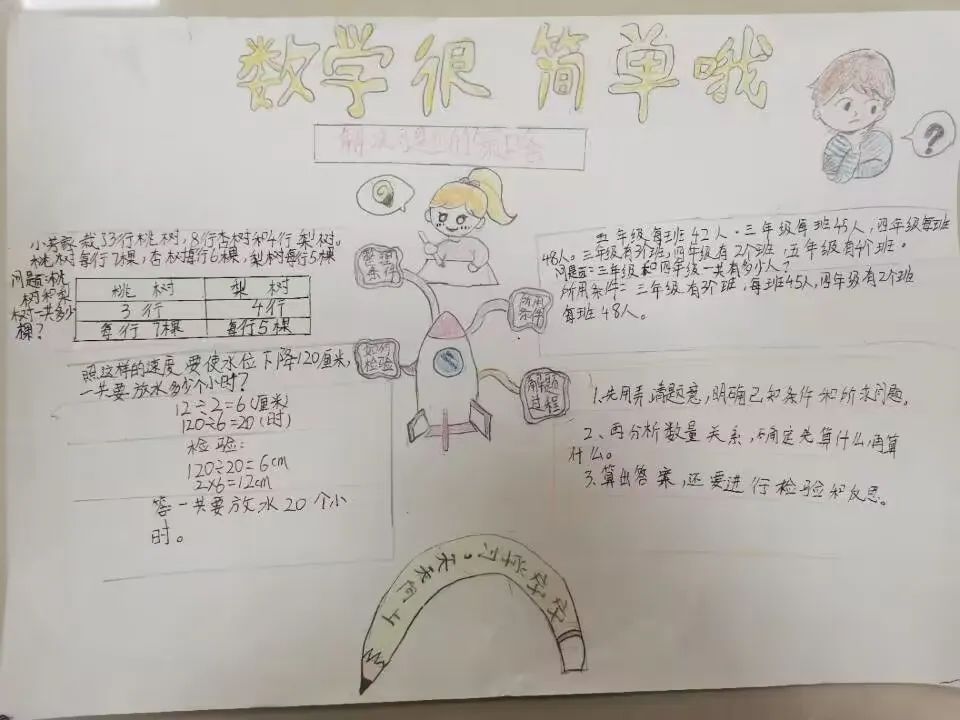 数学很简单哦
解决问题的策略
?
小芳家栽了3行桃树,8行杏树和4行梨树。
桃树每行7棵,杏树每行6棵,梨树每行5棵
问题:桃
树和梨
树一共多少
棵?
桃树 梨树
3行 4行
每行7棵 每行5棵
整理
条件
所用
条件
如何
检验
解题
过程
五年级每班42人.三年级每班45人,四年级每班
48人。三年级有3个班,四年级有2个班,五年级有4个班。
问题=三年级和四年级一共有多少人?
所用条件=三年级有3个班,每班45人,四年级有2个班
每班48人。
照这样的速度 要使水位下降120厘米,
一共要放水多少个小时?
12÷2=6(厘米)
120÷6=20(时)
检验:
120÷20=6cm
2×6=12cm
答一共要放水20个小
时。
1.先用弄清题意,明确已知条件和所求问题。
2、再分析数量关系,确定先算什么,再算
什么。
3.算出答案,还要进行检验和反思。
好好学习,天天向上